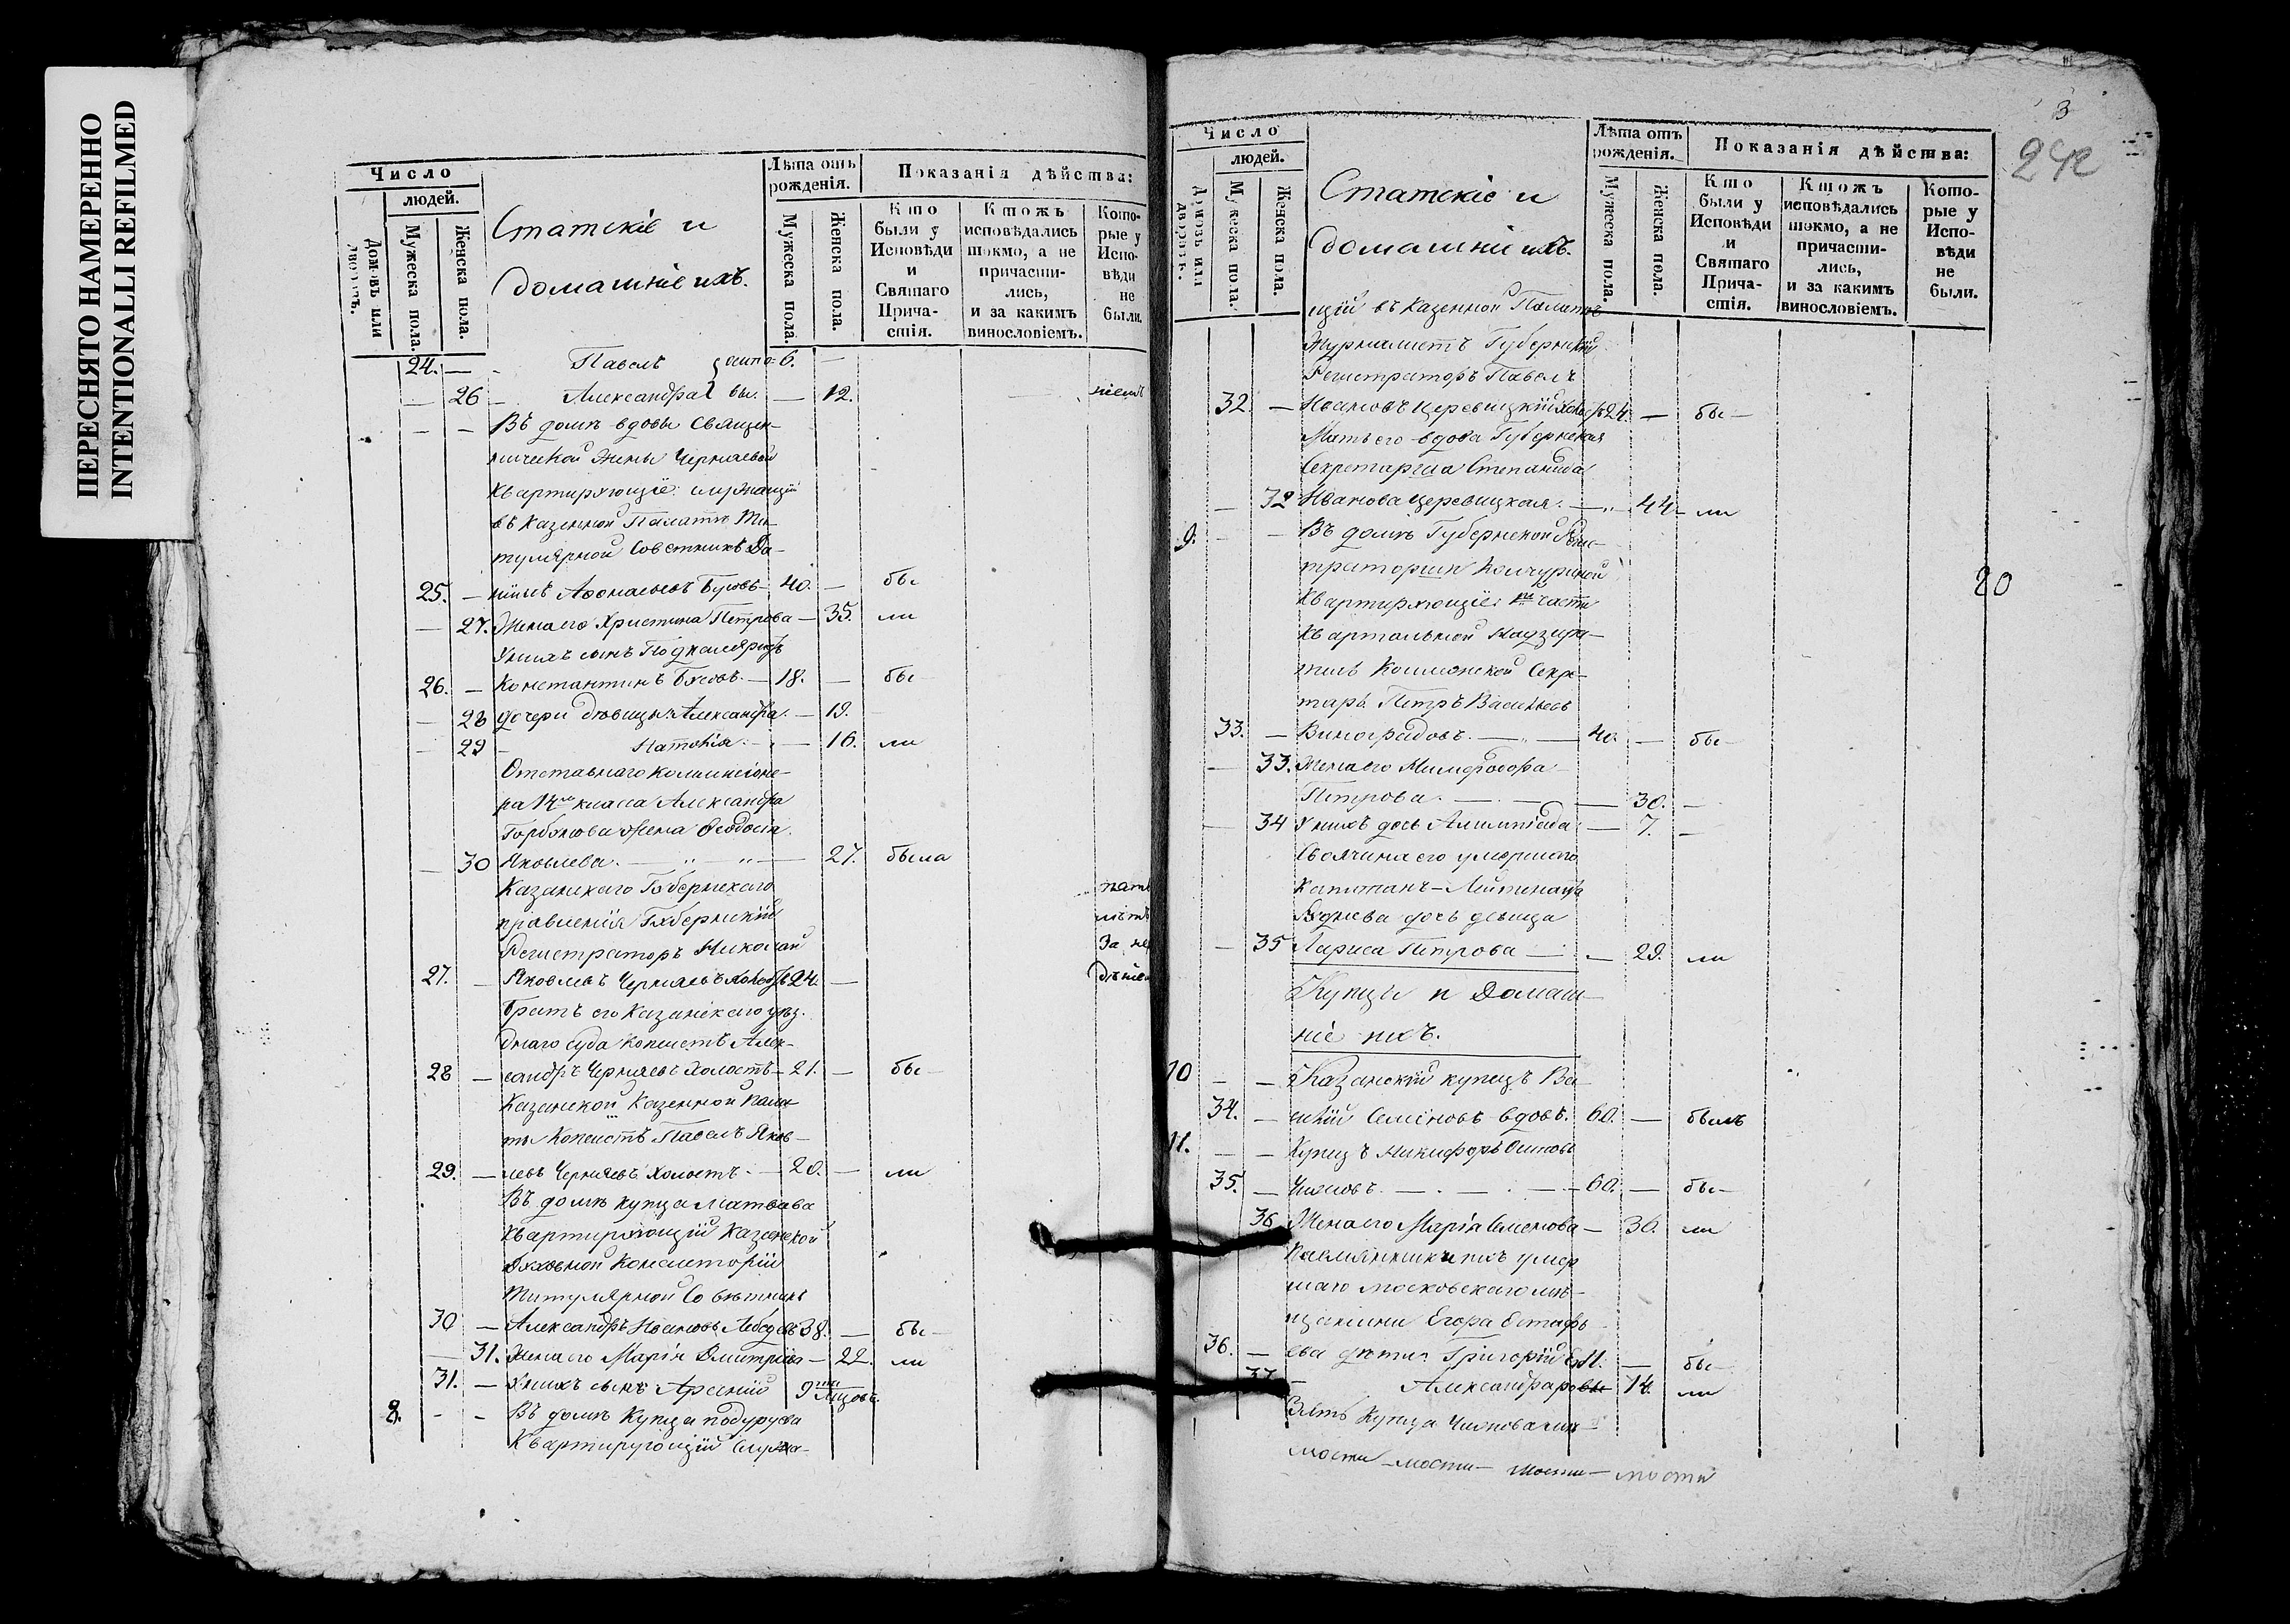 ПЕРЕСНЯТО НАМЕРЕННО
INTENTIONALLI REFILMED
Число
людей.
Домовъ или дворовъ.
Мужеска пола.
Женска пола.
Статскіе и
домашніе ихъ.
Лѣта отъ рожденія.
Мужеска пола.
Женска пола.
Показанія дѣйства:
Кто были у Исповѣди и Святаго Причастія.
Ктожъ исповѣдались токмо, а не причастились, и за какимъ винословіемъ.
Которые у Исповѣди не были.
24. — Павелъ 6. —
— 26 — Александра — 12.
— — Въ домѣ вдовы Священ-
нической жены Черняевой
квартирующіе: служащій
въ Казенной Палатѣ Ти-
тулярной Совѣтникъ
25. — Аѳонасьевъ — 40. — бы
— 27. Жена его Христина Петрова — 35. ли
У нихъ сынъ Подканцеляристъ
26. — Константинъ — 18. — бы
— 28 дочери дѣвицы: Александра. — 19.
— 29 — Наталія — 16. ли
Отставнаго коммисіоне-
ра 14го класса Александра
Горбунова жена Ѳеодосія
— 30 Яковлева. — 27. была
Казанскаго Губернскаго
правленія Губернскій
Регистраторъ Николай
27. — Яковлевъ Черняевъ холостъ 24. —
Братъ его Казанскаго уѣз-
днаго суда копіистъ Алек-
28 — сандръ Черняевъ холостъ — 21. — бы —
Казанской Казенной пала-
ты копіистъ Павелъ Яков-
29. — левъ Черняевъ холостъ. — 20. — ли
Въ домѣ купца Матвѣева
квартирующій Казанской
духовной Консисторіи
Титулярной Совѣтникъ
30 — Александръ Ивановъ Лебедевъ 38. — бы —
— 31. Жена его Марія Дмитріева — 22. ли
31. — У нихъ сынъ Арсеній 9
8. — — Въ домѣ купца
Квартирующій служа-
3
242
Число
людей.
Домовъ или дворовъ.
Мужеска пола.
Женска пола.
Статскіе и
домашніе ихъ.
Лѣта отъ рожденія.
Мужеска пола.
Женска пола.
Показанія дѣйства:
Кто были у Исповѣди и Святаго Причастія.
Ктожъ исповѣдались токмо, а не причастились, и за какимъ винословіемъ.
Которые у Исповѣди не были.
щій въ Казенной Палатѣ
Журналистъ Губернскій
Регистраторъ Павелъ
32. — Ивановъ Церевицкій холостъ 24. — бы —
Мать его вдова Губернская
Секретарша Степанида
— 32 Иванова Церевицкая. — 44 — ли
9. — — Въ домѣ Губернской Реги-
страторши
Квартирующіе: части
Квартальной Надзира-
тель Коллежской Секре-
тарь Петръ Васильевъ
33. — Виноградовъ. — 40. — бы —
— 33. Жена его
Петрова. — 30. —
— 34 У нихъ дочь Алимпіада — 7. —
Своячина его умершаго
Капитанъ-Лейтенанта
дочь дѣвица
— 35 Лариса Петрова — — 29. ли
Купцы и Домаш-
ніе ихъ.
10 — — Казанскій купецъ Ва-
34. — силій Семеновъ вдовъ. 60. — былъ
11. — — Купецъ Никифоръ Осиповъ
35. — — 60. — бы —
36 Жена его Марія Семенова — 36. ли
Племянники ихъ умер-
шаго московскаго мѣ-
щанина Егора Евстафь-
36. — ева дѣти: Григорій — бы —
37 — Александра 14. ли
Зять купца
мости — мости — мости — мости
20